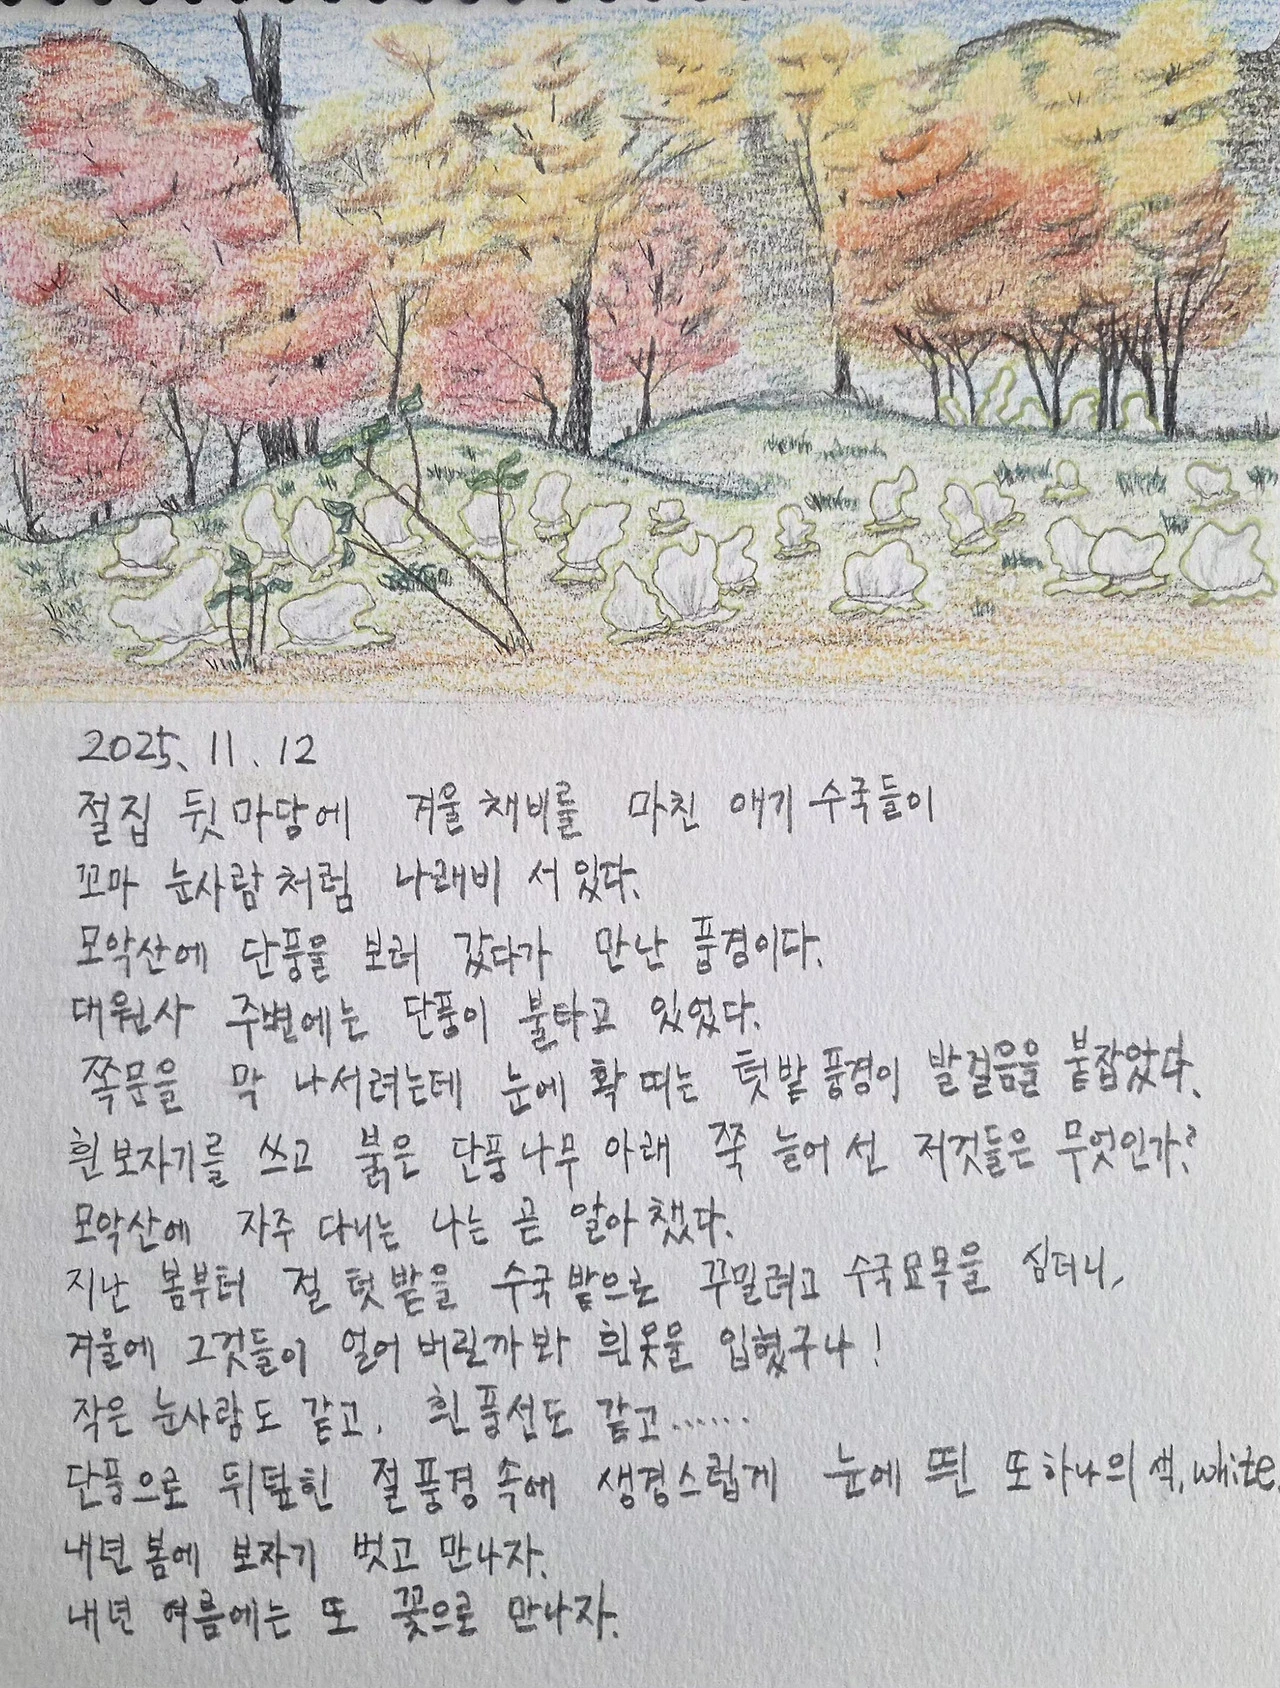 2025. 11. 12
절집 뒷마당에 겨울 채비를 마친 애기 수국들이
꼬마 눈사람처럼 나래비 서 있다.
모악산에 단풍을 보러 갔다가 만난 풍경이다.
대원사 주변에는 단풍이 불타고 있었다.
쪽문을 막 나서려는데 눈에 확 띠는 텃밭 풍경이 발걸음을 붙잡았다.
흰 보자기를 쓰고 붉은 단풍나무 아래 쭉 늘어 선 저것들은 무엇인가?
모악산에 자주 다니는 나는 곧 알아챘다.
지난 봄부터 절 텃밭을 수국밭으로 꾸밀려고 수국묘목을 심더니,
겨울에 그것들이 얼어 버릴까 봐 흰옷을 입혔구나!
작은 눈사람도 같고, 흰 풍선도 같고......
단풍으로 뒤덮힌 절 풍경 속에 생경스럽게 눈에 띈 또 하나의 색, white.
내년 봄에 보자기 벗고 만나자.
내년 여름에는 또 꽃으로 만나자.